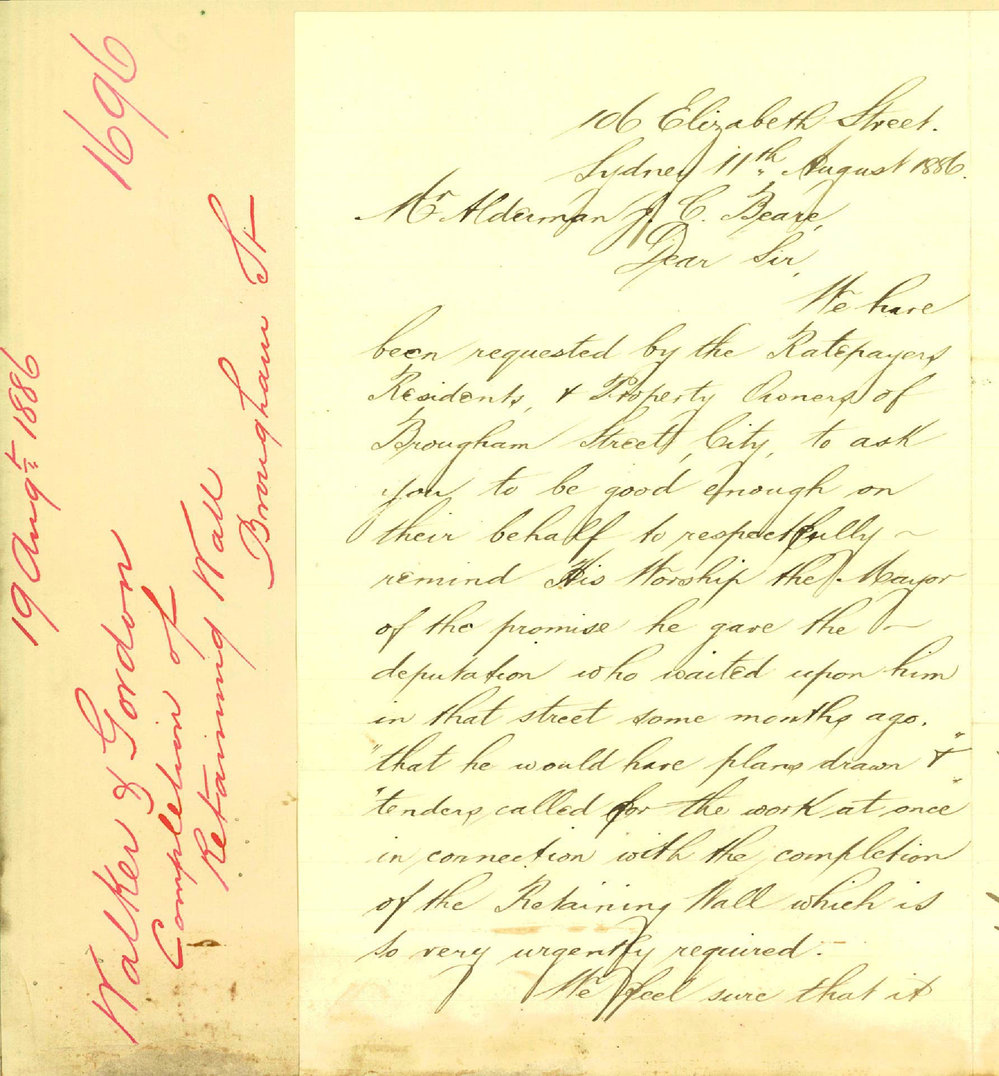 1696
19 Augt: 1886
Walker & Gordon
Completion of
Retaining Wall
Brougham St
106 Elizabeth Street.
Sydney 11th August 1886.
Mr Alderman J. C. Beare,
Dear Sir,
We have
been requested by the Ratepayers,
Residents, & Property Owners of
Brougham Street, City, to ask
you to be good enough on
their behalf to respectfully ~
remind His Worship the Mayor
of the promise he gave the ~
deputation who waited upon him
in that street some months ago.
"that he would have plans drawn &"
"tenders called for the work at once"
in connection with the completion
of the Retaining Wall which is
so very urgently required.
We feel sure that it